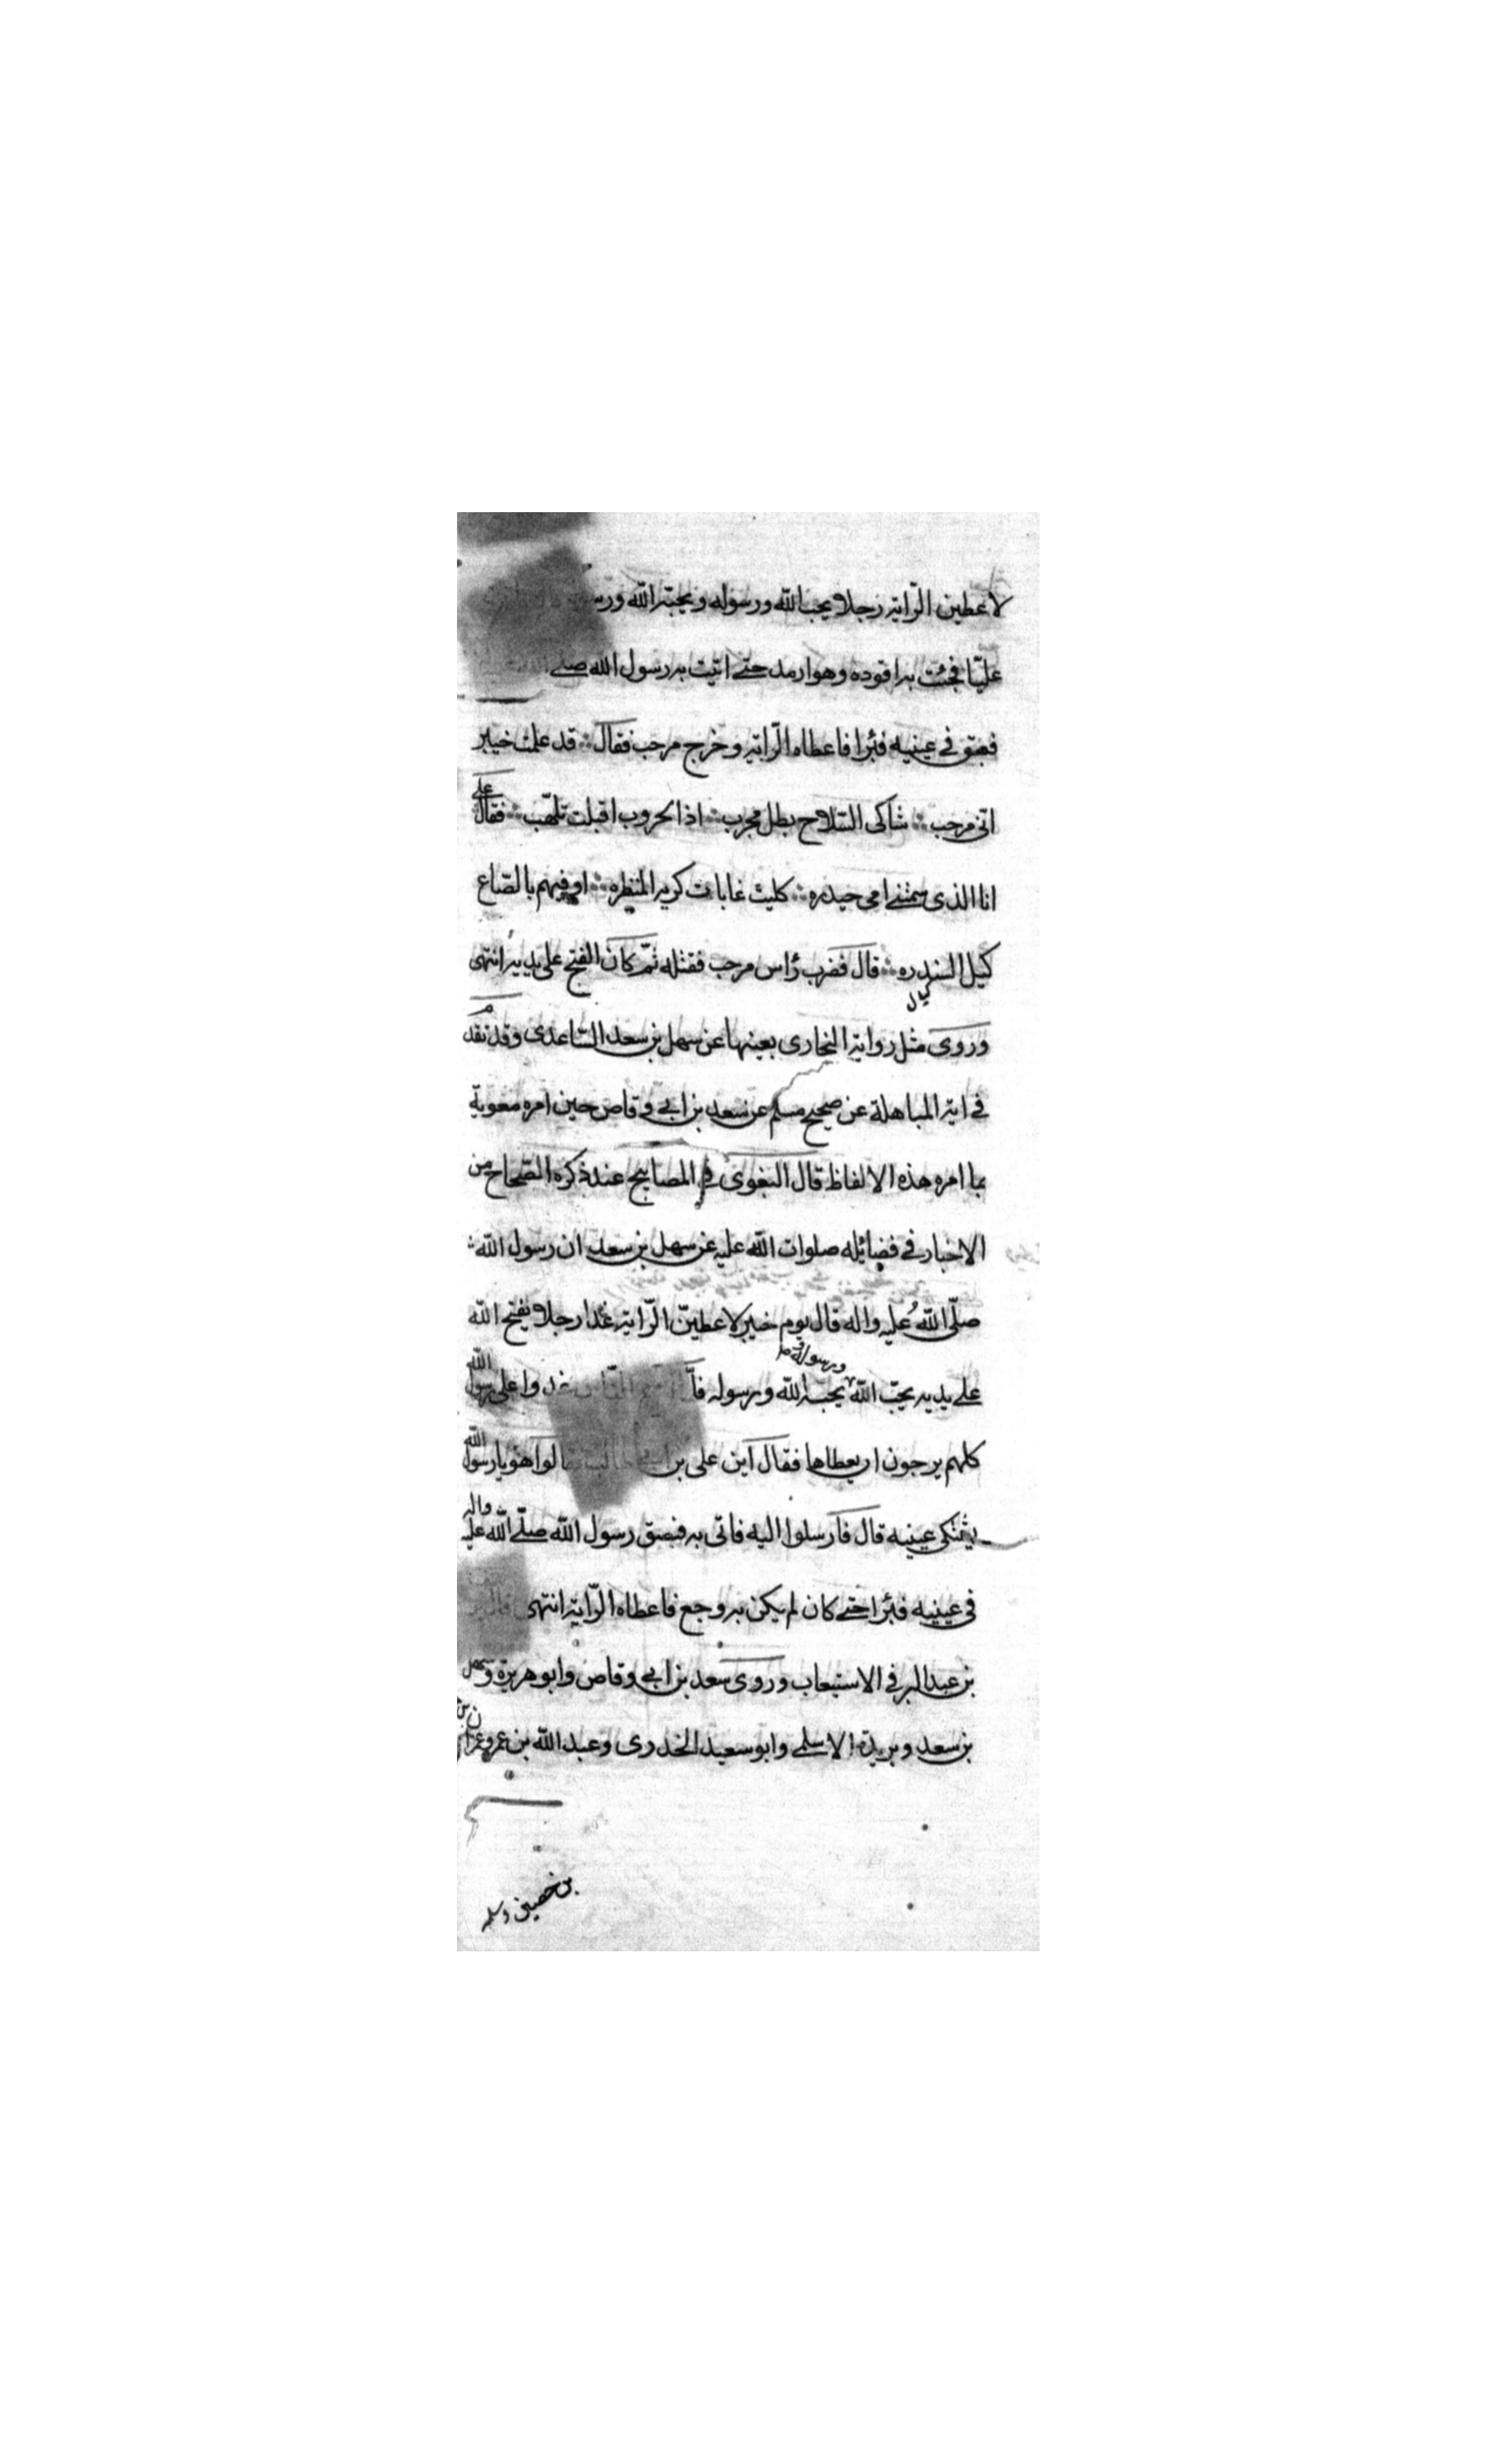 لاعطين الرّاية رجلا يحب الله ورسوله ويحبّه الله ورسوله
عليّا فجئت به اقوده وهو ارمد حتى اتيت به رسول الله صلى
فبصق في عينيه فبرا فاعطاه الرّاية وخرج مرحب فقال قد علمت خيبر
انّي مرحب شاكى السّلاح بطل مجرب اذا الحروب اقبلت تلهّب فقال على
انا الذى سمتنى امى حيدره كليث غابات كريه المنظره اوفيهم بالصّاع
كيل السندره قال فضرب رأس مرحب فقتله ثمّ كان الفتح على يديه انتهى
وروى مثل رواية البخارى بعينها عن سهل بن سعد السّاعدى وقد تقدم
في اية المباهلة عن صحيح مسلم عن سعد بن ابى وقاص حين امره معوية
بما امره هذه الالفاظ قال البغوى في المصابيح عند ذكره الصّحاح من
الاخبار في فضايله صلوات الله عليه عن سهل بن سعد ان رسول الله
صلّى الله عليه واله قال يوم خيبر لاعطينّ الرّاية غدا رجلا يفتح الله
على يديه يحبّ الله ورسوله يحبه الله ورسوله فلّما اصبح النّاس غدوا على رسول الله
كلهم يرجون ان يعطاها فقال اين على بن ابى طالب فقالوا هو يا رسول الله
يشتكى عينيه قال فارسلوا اليه فاتى به فبصق رسول الله صلّى الله عليه واله
في عينيه فبرا حتى كان لم يكن به وجع فاعطاه الرّاية انتهى قال
بن عبد البر في الاستيعاب وروى سعد بن ابى وقاص وابو هريرة وسهل
بن سعد وبريدة الاسلمى وابو سعيد الخدرى وعبد الله بن عمر وعمران بن
بن حصين وسلمه